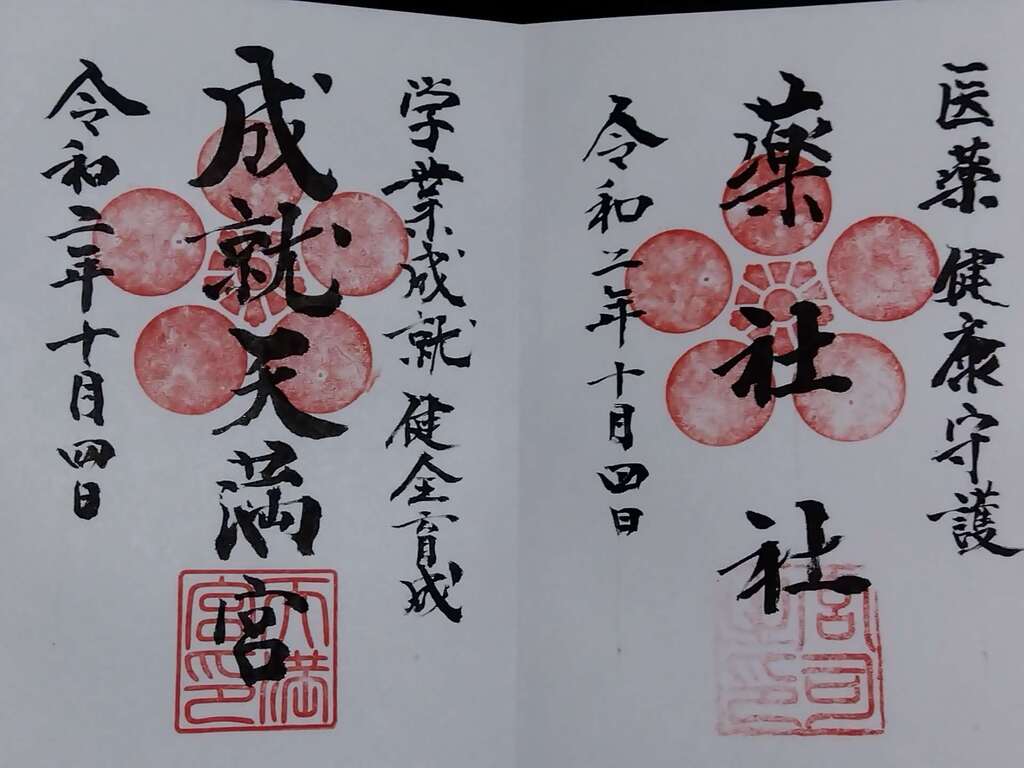 医薬 健康守護
薬社社
令和二年十月四日
学業成就 健全育成
成就天満宮
天満宮印
令和二年十月四日